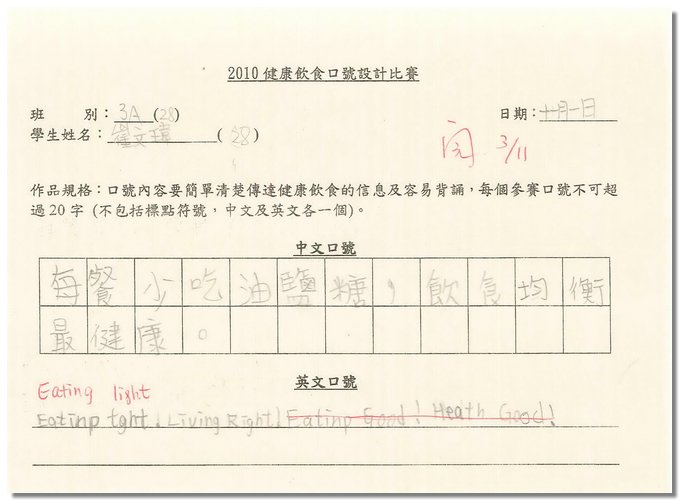 2010 健康飲食口號設計比賽
班 別：3A (28)
日期：十一月一日
學生姓名：崔文瑋 (28)
閱 3/11
作品規格：口號內容要簡單清楚傳達健康飲食的信息及容易背誦，每個參賽口號不可超
過20字 (不包括標點符號，中文及英文各一個)。
中文口號
每餐少吃油鹽糖，飲食均衡
最健康。
英文口號
Eating light
Eatinp tght! Living Right! Eatinp Good! Heath Good!